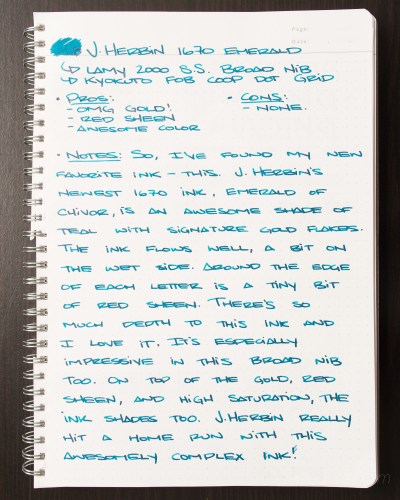 J. Herbin 1670 Emerald
↳ Lamy 2000 S.S. Broad Nib
↳ Kyokuto FOB COOP Dot Grid
• Pros:
- OMG Gold!
- Red Sheen
- Awesome Color
• Cons:
- None.
• Notes: So, I've found my new
favorite ink - this. J. Herbin's
newest 1670 ink, Emerald of
Chivor, is an awesome shade of
teal with signature gold flakes.
The ink flows well, a bit on
the wet side. Around the edge
of each letter is a tiny bit
of red sheen. There's so
much depth to this ink and
I love it. It's especially
impressive in this broad nib
too. On top of the gold, red
sheen, and high saturation, the
ink shades too. J. Herbin really
hit a home run with this
awesomely complex ink!